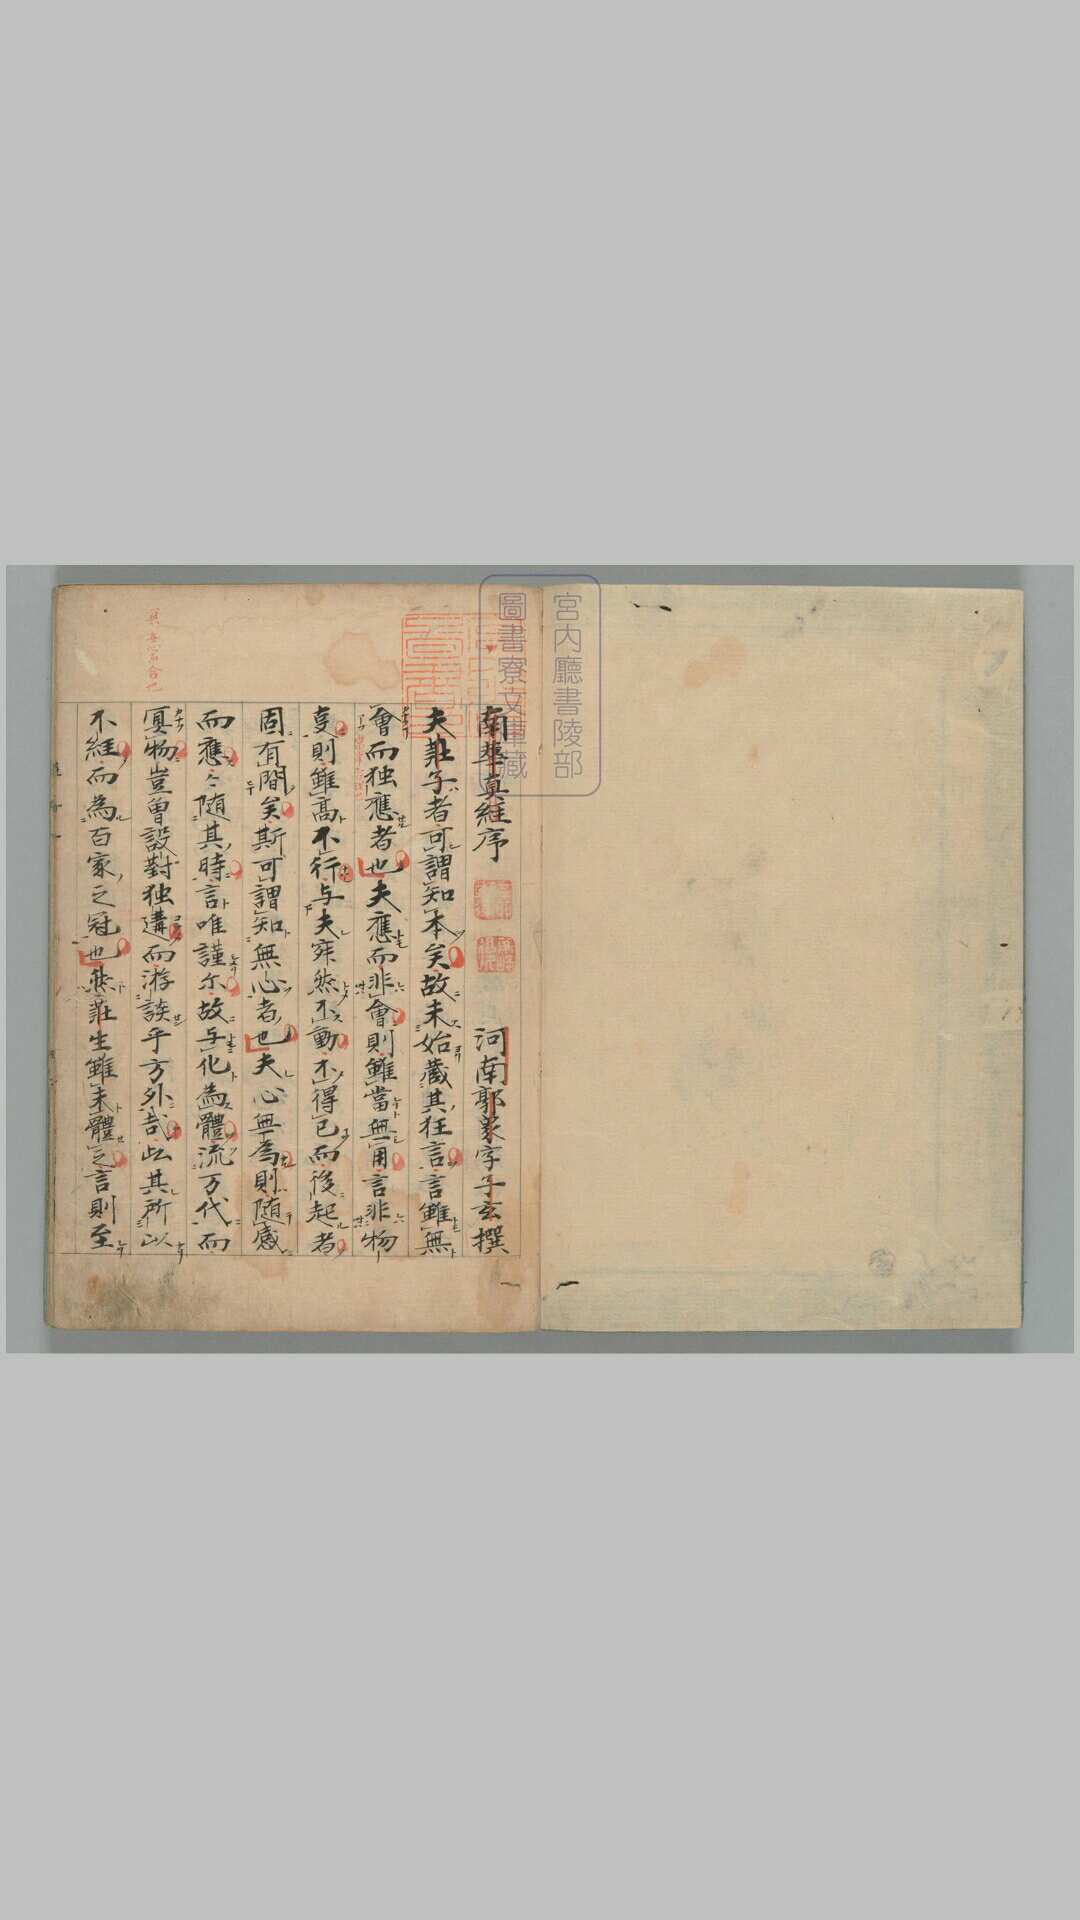 宮内廳書陵部
圖書寮文庫藏
南華真経序
河南郭象字子玄撰
夫莊子者可謂知本矣故未始藏其狂言言雖無
會而独應者也夫應而非會則雖當無用言非物
㕝則雖高不行与夫寂然不動不得已而後起者
固有間矣斯可謂知無心者也夫心無為則随感
而應々随其時言唯謹尓故与化為體流万代而
冥物豈曽設對独遘而游談乎方外哉此其所以
不経而為百家之冠也然莊生雖未體之言則至